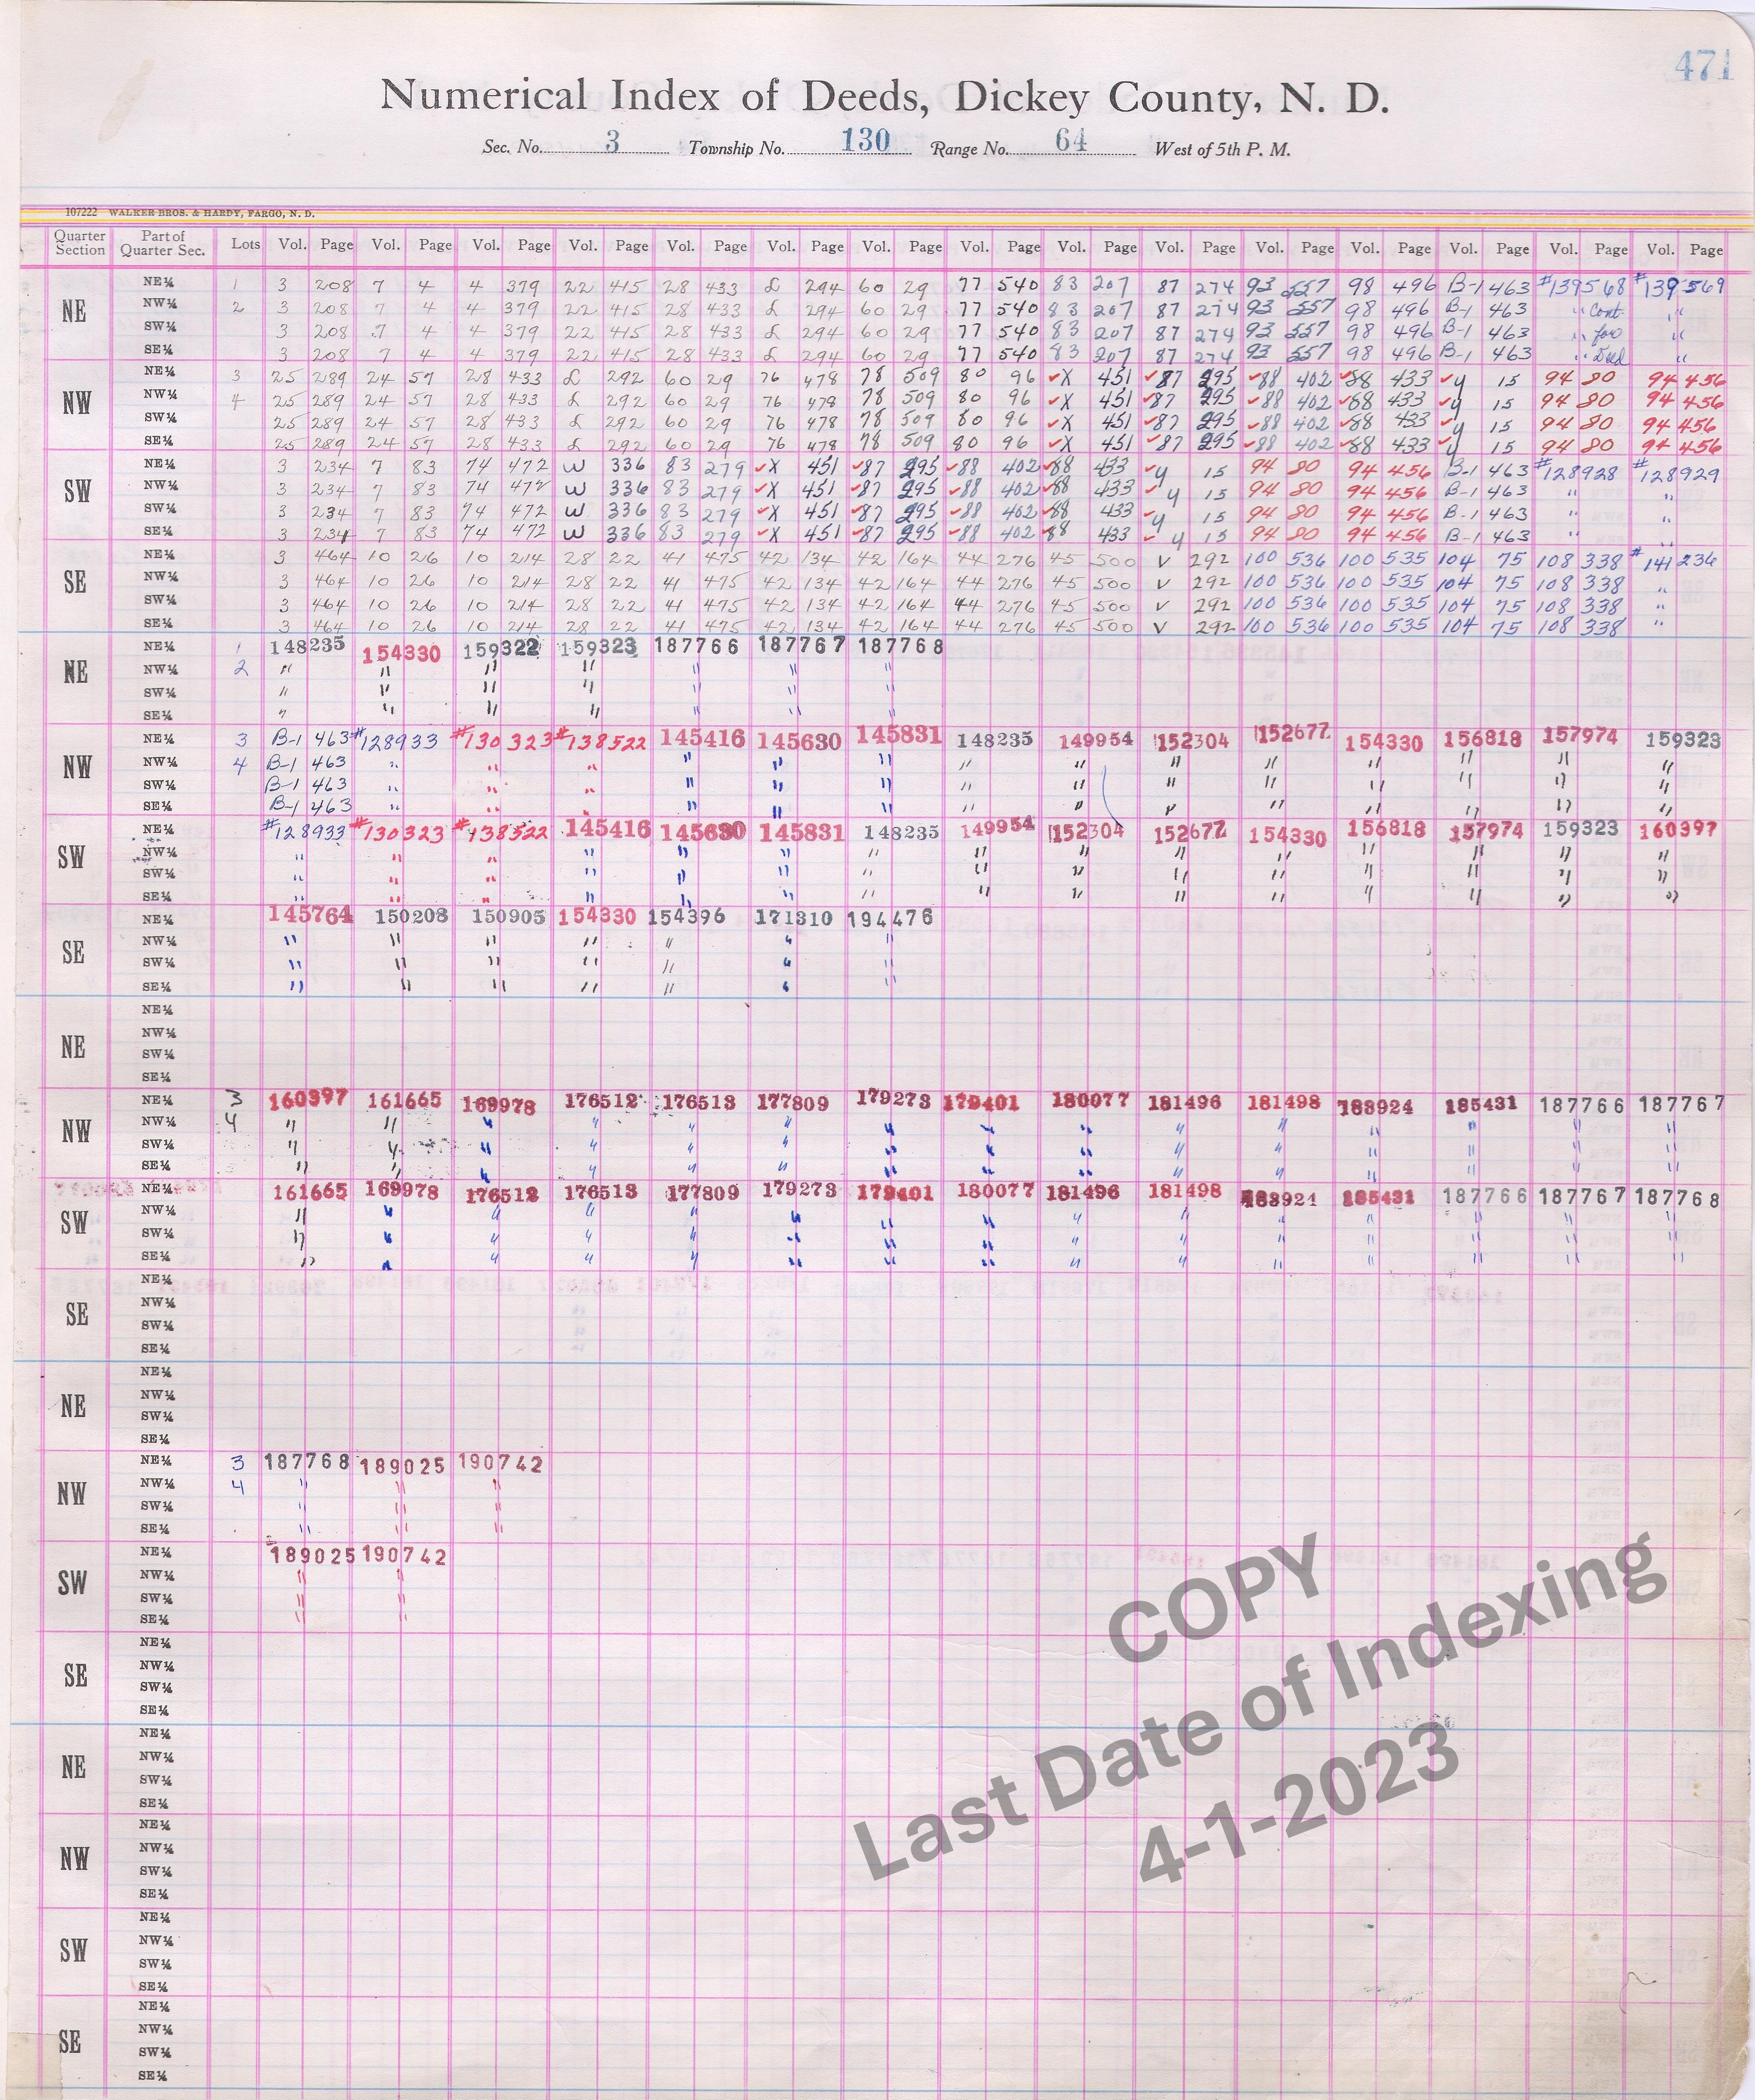 471
Numerical Index of Deeds, Dickey County, N. D.
Sec. No. 3 Township No. 130 Range No. 64 West of 5th P. M.
107222 WALKER BROS. & HARDY, FARGO, N. D.
Quarter Section Part of Quarter Sec. Lots Vol. Page Vol. Page Vol. Page Vol. Page Vol. Page Vol. Page Vol. Page Vol. Page Vol. Page Vol. Page Vol. Page Vol. Page Vol. Page Vol. Page Vol. Page
NE
NE¼ 1 3 208 7 4 4 379 22 415 28 433 £ 294 60 29 77 540 83 207 87 274 93 557 98 496 B-1 463 #139568 #139569
NW¼ 2 3 208 7 4 4 379 22 415 28 433 £ 294 60 29 77 540 83 207 87 274 93 557 98 496 B-1 463 " Cont "
SW¼ 3 208 7 4 4 379 22 415 28 433 £ 294 60 29 77 540 83 207 87 274 93 557 98 496 B-1 463 " for "
SE¼ 3 208 7 4 4 379 22 415 28 433 £ 294 60 29 77 540 83 207 87 274 93 557 98 496 B-1 463 " Deed "
NW
NE¼ 3 25 289 24 57 28 433 £ 292 60 29 76 478 78 509 80 96 ✓X 451 ✓87 295 ✓88 402 ✓88 433 ✓y 15 94 80 94 456
NW¼ 4 25 289 24 57 28 433 £ 292 60 29 76 478 78 509 80 96 ✓X 451 ✓87 295 ✓88 402 ✓88 433 ✓y 15 94 80 94 456
SW¼ 25 289 24 57 28 433 £ 292 60 29 76 478 78 509 80 96 ✓X 451 ✓87 295 ✓88 402 ✓88 433 ✓y 15 94 80 94 456
SE¼ 25 289 24 57 28 433 £ 292 60 29 76 478 78 509 80 96 ✓X 451 ✓87 295 ✓88 402 ✓88 433 ✓y 15 94 80 94 456
SW
NE¼ 3 234 7 83 74 472 W 336 83 279 ✓X 451 ✓87 295 ✓88 402 ✓88 433 ✓y 15 94 80 94 456 B-1 463 #128928 #128929
NW¼ 3 234 7 83 74 472 W 336 83 279 ✓X 451 ✓87 295 ✓88 402 ✓88 433 ✓y 15 94 80 94 456 B-1 463 " "
SW¼ 3 234 7 83 74 472 W 336 83 279 ✓X 451 ✓87 295 ✓88 402 ✓88 433 ✓y 15 94 80 94 456 B-1 463 " "
SE¼ 3 234 7 83 74 472 W 336 83 279 ✓X 451 ✓87 295 ✓88 402 ✓88 433 ✓y 15 94 80 94 456 B-1 463 " "
SE
NE¼ 3 464 10 26 10 214 28 22 41 475 42 134 42 164 44 276 45 500 V 292 100 536 100 535 104 75 108 338 #141236
NW¼ 3 464 10 26 10 214 28 22 41 475 42 134 42 164 44 276 45 500 V 292 100 536 100 535 104 75 108 338 "
SW¼ 3 464 10 26 10 214 28 22 41 475 42 134 42 164 44 276 45 500 V 292 100 536 100 535 104 75 108 338 "
SE¼ 3 464 10 26 10 214 28 22 41 475 42 134 42 164 44 276 45 500 V 292 100 536 100 535 104 75 108 338 "
NE
NE¼ 1 148235 154330 159322 159323 187766 187767 187768
NW¼ 2 " " " " " " "
SW¼ " " " " " " "
SE¼ " " " " " " "
NW
NE¼ 3 B-1 463 #128933 #130323 #138522 145416 145630 145831 148235 149954 152304 152677 154330 156818 157974 159323
NW¼ 4 B-1 463 " " " " " " " " " " " " " "
SW¼ B-1 463 " " " " " " " " " " " " " "
SE¼ B-1 463 " " " " " " " " " " " " " "
SW
NE¼ #128933 #130323 #138522 145416 145630 145831 148235 149954 152304 152677 154330 156818 157974 159323 160397
NW¼ " " " " " " " " " " " " " " "
SW¼ " " " " " " " " " " " " " " "
SE¼ " " " " " " " " " " " " " " "
SE
NE¼ 145764 150208 150905 154330 154396 171310 194476
NW¼ " " " " " " "
SW¼ " " " " " " "
SE¼ " " " " " " "
NE
NE¼
NW¼
SW¼
SE¼
NW
NE¼ 3 160397 161665 169978 176512 176513 177809 179273 179401 180077 181496 181498 183924 185431 187766 187767
NW¼ 4 " " " " " " " " " " " " " " "
SW¼ " " " " " " " " " " " " " " "
SE¼ " " " " " " " " " " " " " " "
SW
NE¼ 161665 169978 176512 176513 177809 179273 179401 180077 181496 181498 183924 185431 187766 187767 187768
NW¼ " " " " " " " " " " " " " " "
SW¼ " " " " " " " " " " " " " " "
SE¼ " " " " " " " " " " " " " " "
SE
NE¼
NW¼
SW¼
SE¼
NE
NE¼
NW¼
SW¼
SE¼
NW
NE¼ 3 187768 189025 190742
NW¼ 4 " " "
SW¼ " " "
SE¼ " " "
SW
NE¼ 189025 190742
NW¼ " "
SW¼ " "
SE¼ " "
SE
NE¼
NW¼
SW¼
SE¼
NE
NE¼
NW¼
SW¼
SE¼
NW
NE¼
NW¼
SW¼
SE¼
SW
NE¼
NW¼
SW¼
SE¼
SE
NE¼
NW¼
SW¼
SE¼
COPY
Last Date of Indexing
4-1-2023